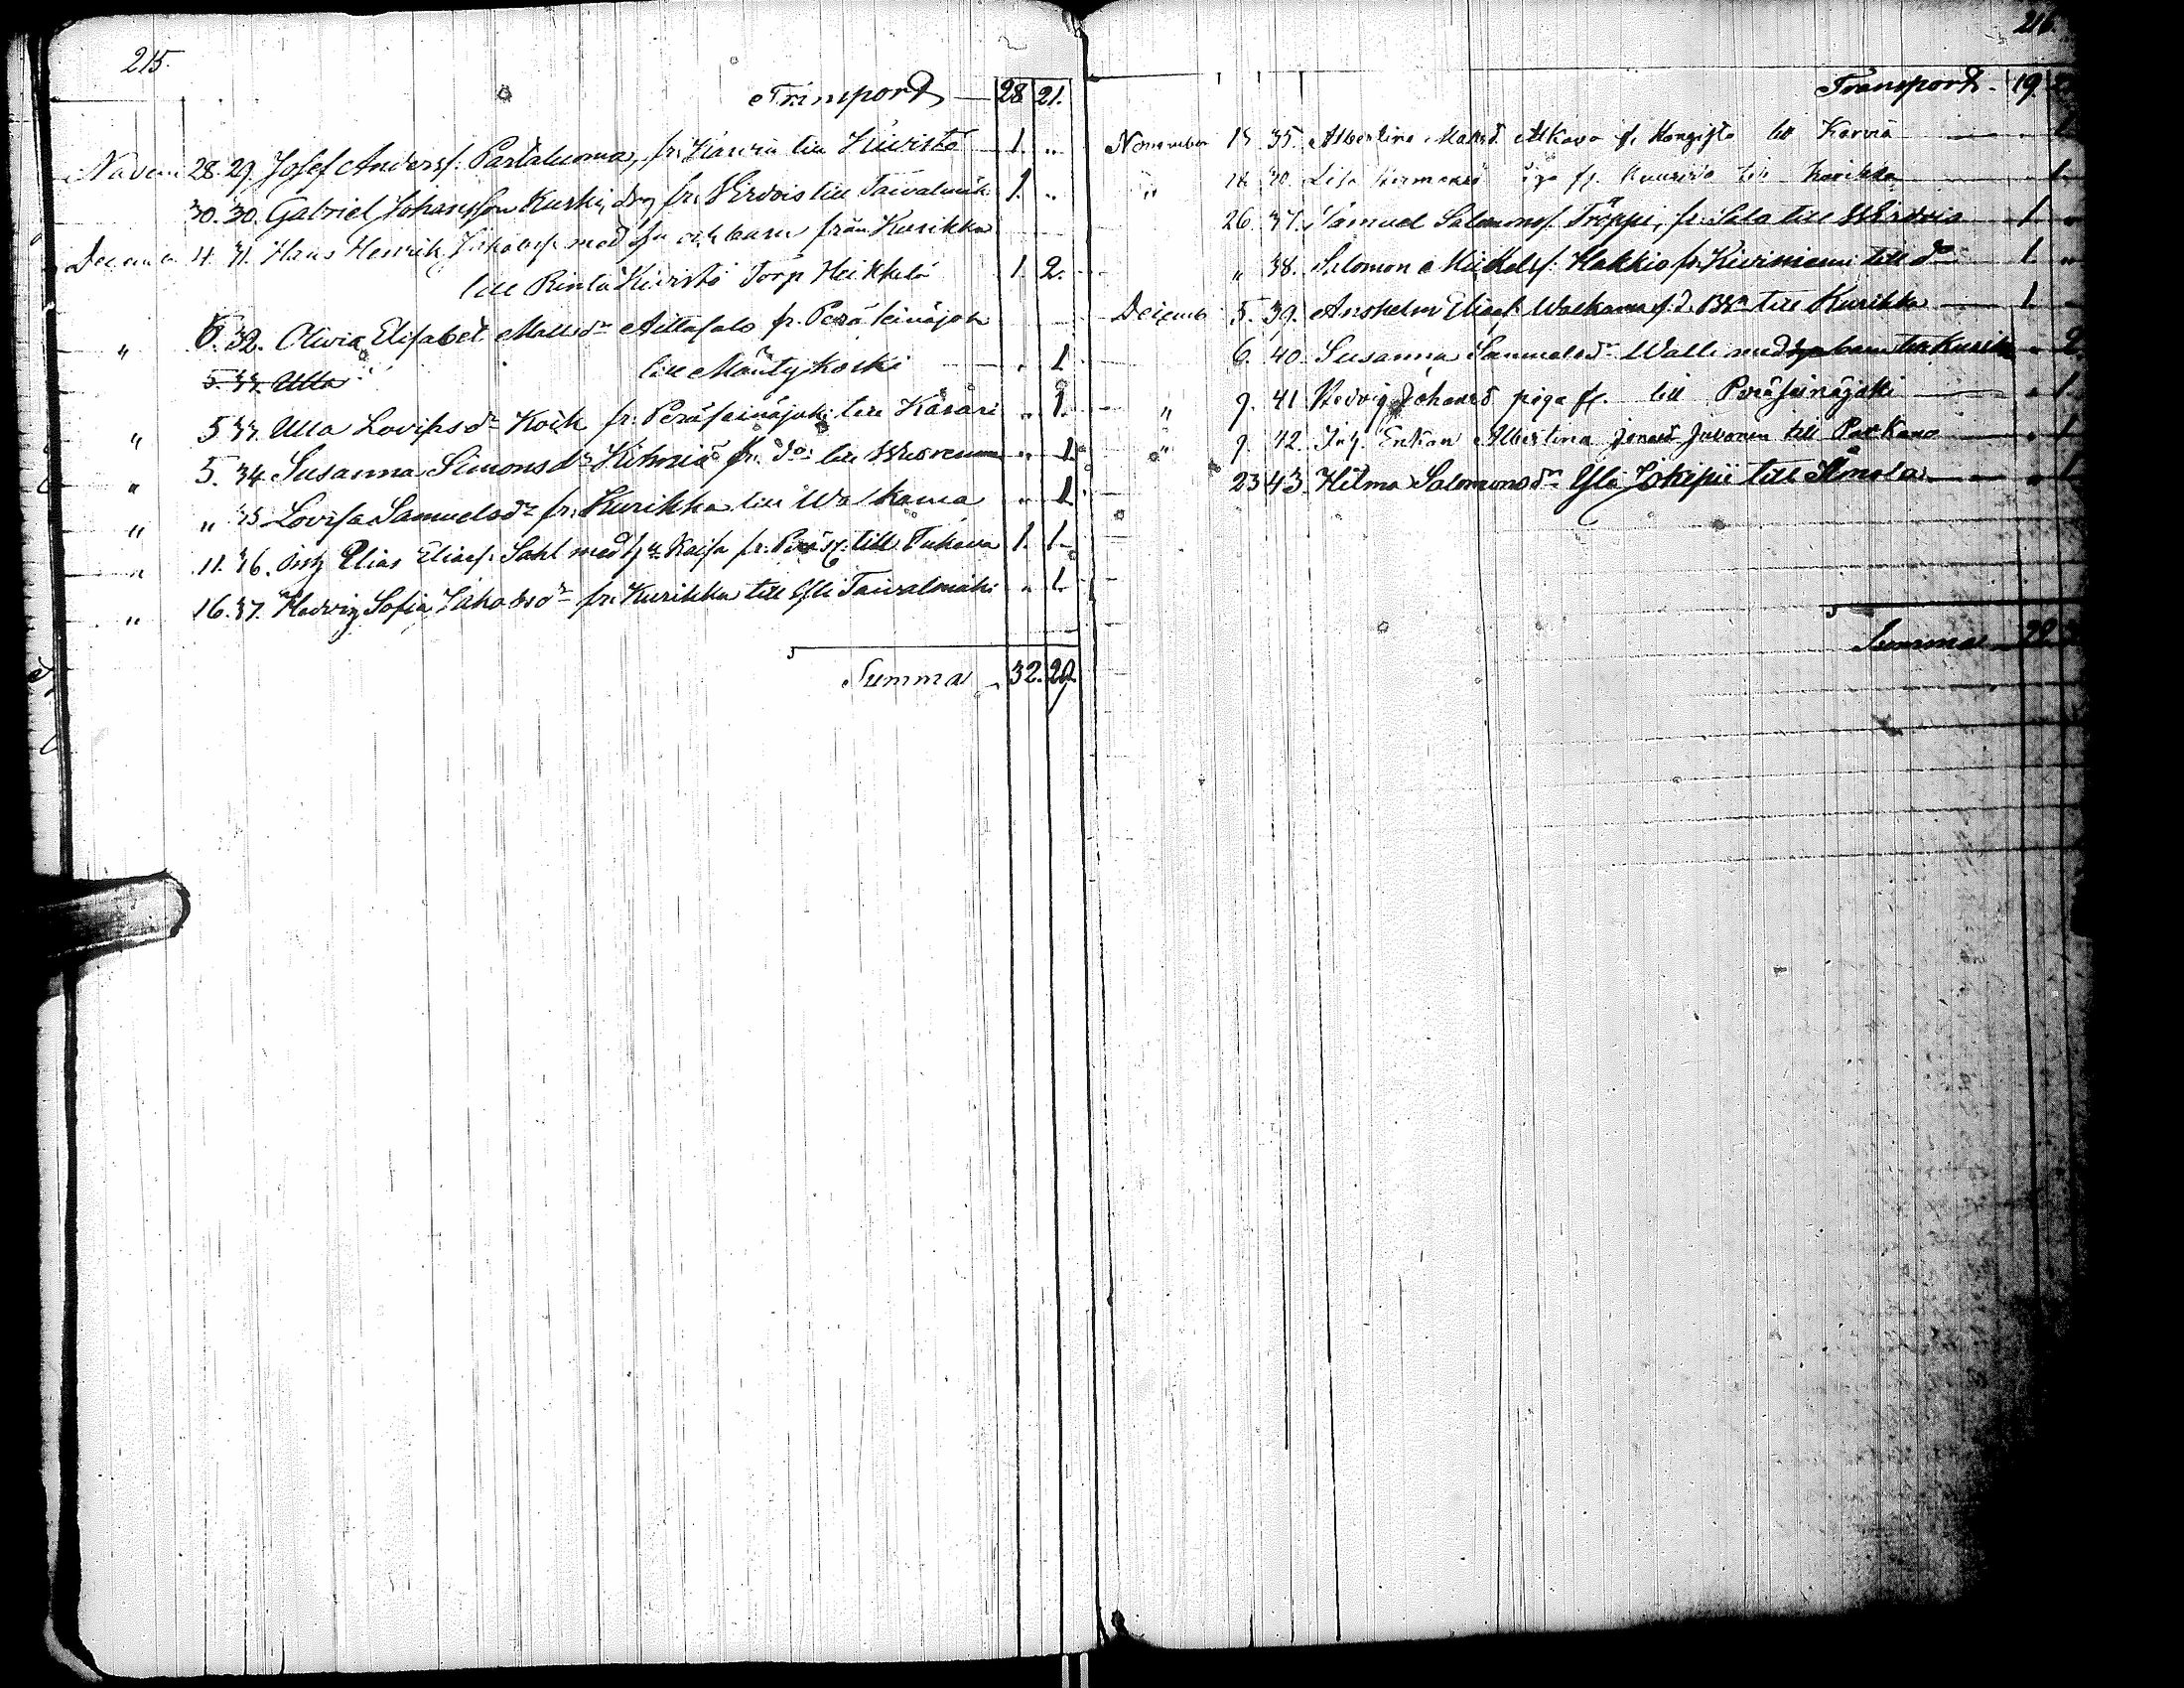 215.
Transport 28 21.
Novem 28. 29. Josef Andersf. Partaluoma, fr. Karvia till Kivistö 1. "
30. 30. Gabriel Johansson Kurki, drg fr. Wirdois till Taivalmäk 1. "
December 4. 31. Hans Henrik Jakobsf. med hu och barn från Kurikka
till Rinta Kivistö Torp Heikkilä 1. 2.
" 5. 32. Olivia Elisabet Mattsdr Aittasalo fr. Peräseinäjoki
till Mäntykoski " 1
5. 33. Ulla
" 5 33. Ulla Lovisasdr Koik fr. Peräseinäjoki till " 1.
" 5. 34 Susanna Simonsdr Kihniä fr. do till " 1.
" " 35 Lovisa Samuelsdr fr. Kurikka till Walkama " 1.
" 11. 36. Elias Eliasf. Sahl med hu Kaisa fr. till 1. 1.
" 16. 37. Hedvig Sofia Jakobsdr fr. Kurikka till Yli Taivalmäki " 1.
Summa 32. 29.
216.
Transport. 19.
November 35. Albertina Matsd. Alkava fr. Kangisto till Karvia " 1
" Lisa piga fr. till Kurikka " 1.
26. 37. Samuel Salomonsf. Träppi, fr. Sala till Wirdois 1 "
" 38. Salomon Mickelsf. Hakkio fr. Kiviniemi till do 1. "
Decemb 5. 39. Anshelm Eliasf. Walkama till Kurikka 1.
6. 40. Susanna Samuelsdr Walli med till Kurik " 2.
" 9. 41 Hedvig Johansd piga fr. till Peräseinäjoki " 1.
" 9. 42. Inh. Enkan Albertina Jonasd Juvonen till Parkano " 1
23 43. Hilma Salomonsdr Yli Jokipii till Ilmola " 1
Summa 22